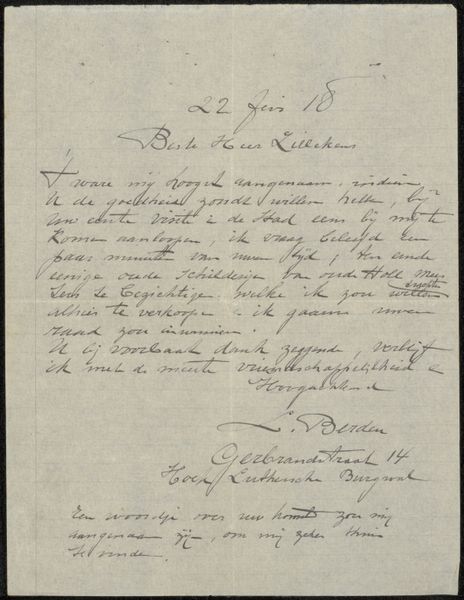 22 Juni 18
Beste Heer Zilcken
't ware mij hoogst aangenaam, indien
U de goedheid zoudt willen hebben, bij
uw eerste visite in de Stad eens bij mij te
komen aanloopen, ik vraag beleefd een
paar minuten van uwen tijd, ten einde
eenige oude schilderijen van oude Holl mees
ters te bezichtigen welke ik zou trachten
alhier te verkoopen & ik gaarne uwen
raad zou inwinnen.
U bij voorbaat dank zeggende, verblijf
ik met de meeste vriendschappelijkheid &
Hoogachtend
L. Berden
Gerbrandstraat 14
Hoek Luthersche Burgwal
Een woordje over uw komst zou mij
aangenaam zijn, om mij zeker thuis
te vinden.